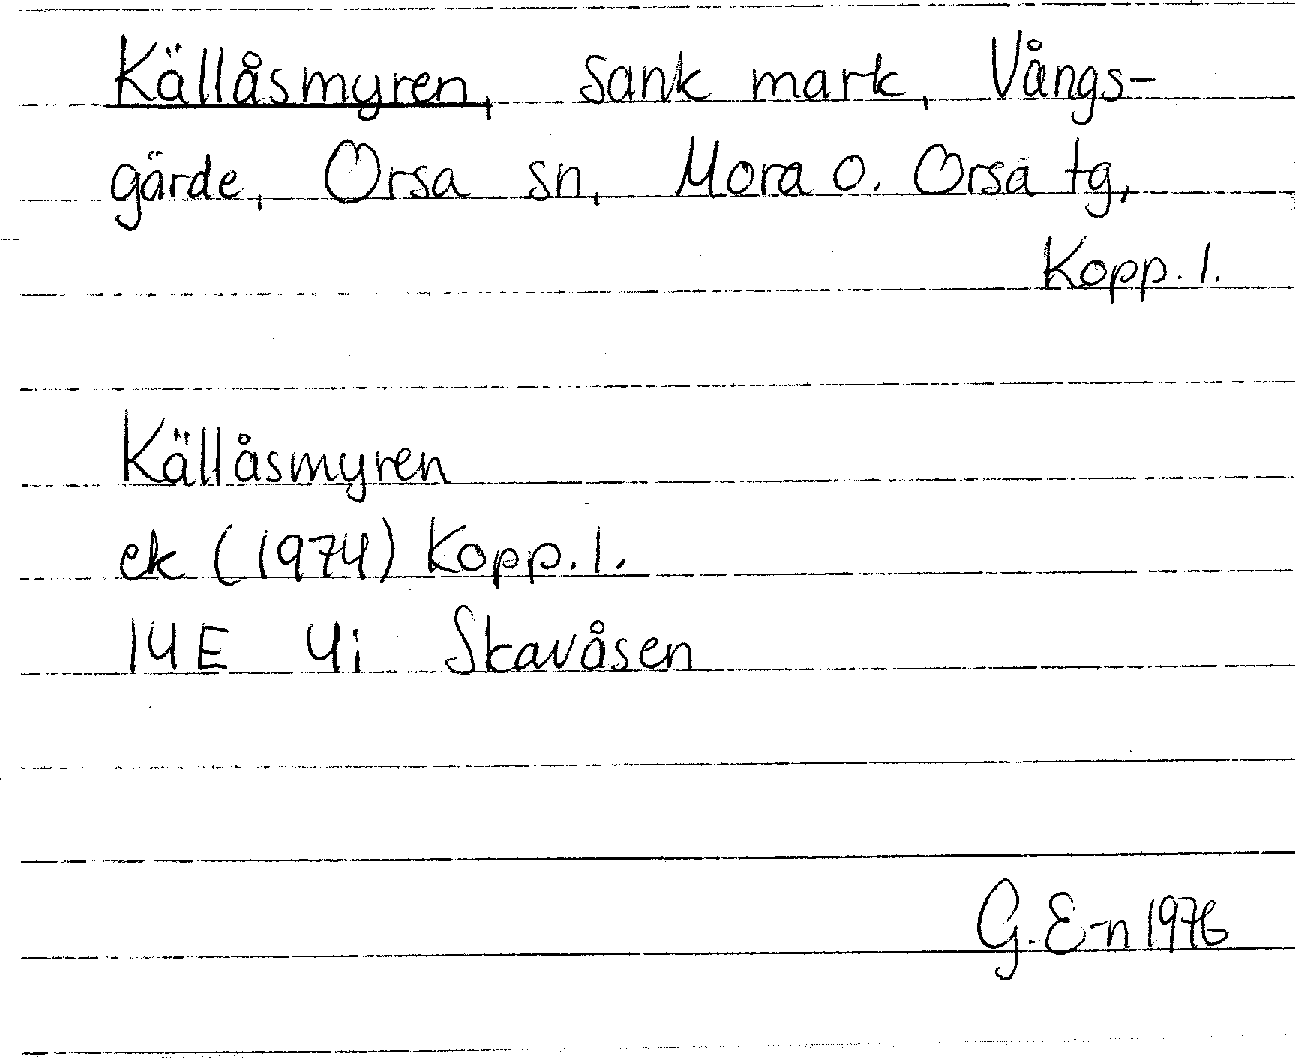 Källåsmyren, sank mark, Vångs-
gärde, Orsa sn, Mora o. Orsa tg,
Kopp. l.
Källåsmyren
ek (1974) Kopp. l.
14E 4i Skavåsen
G. E-n 1976